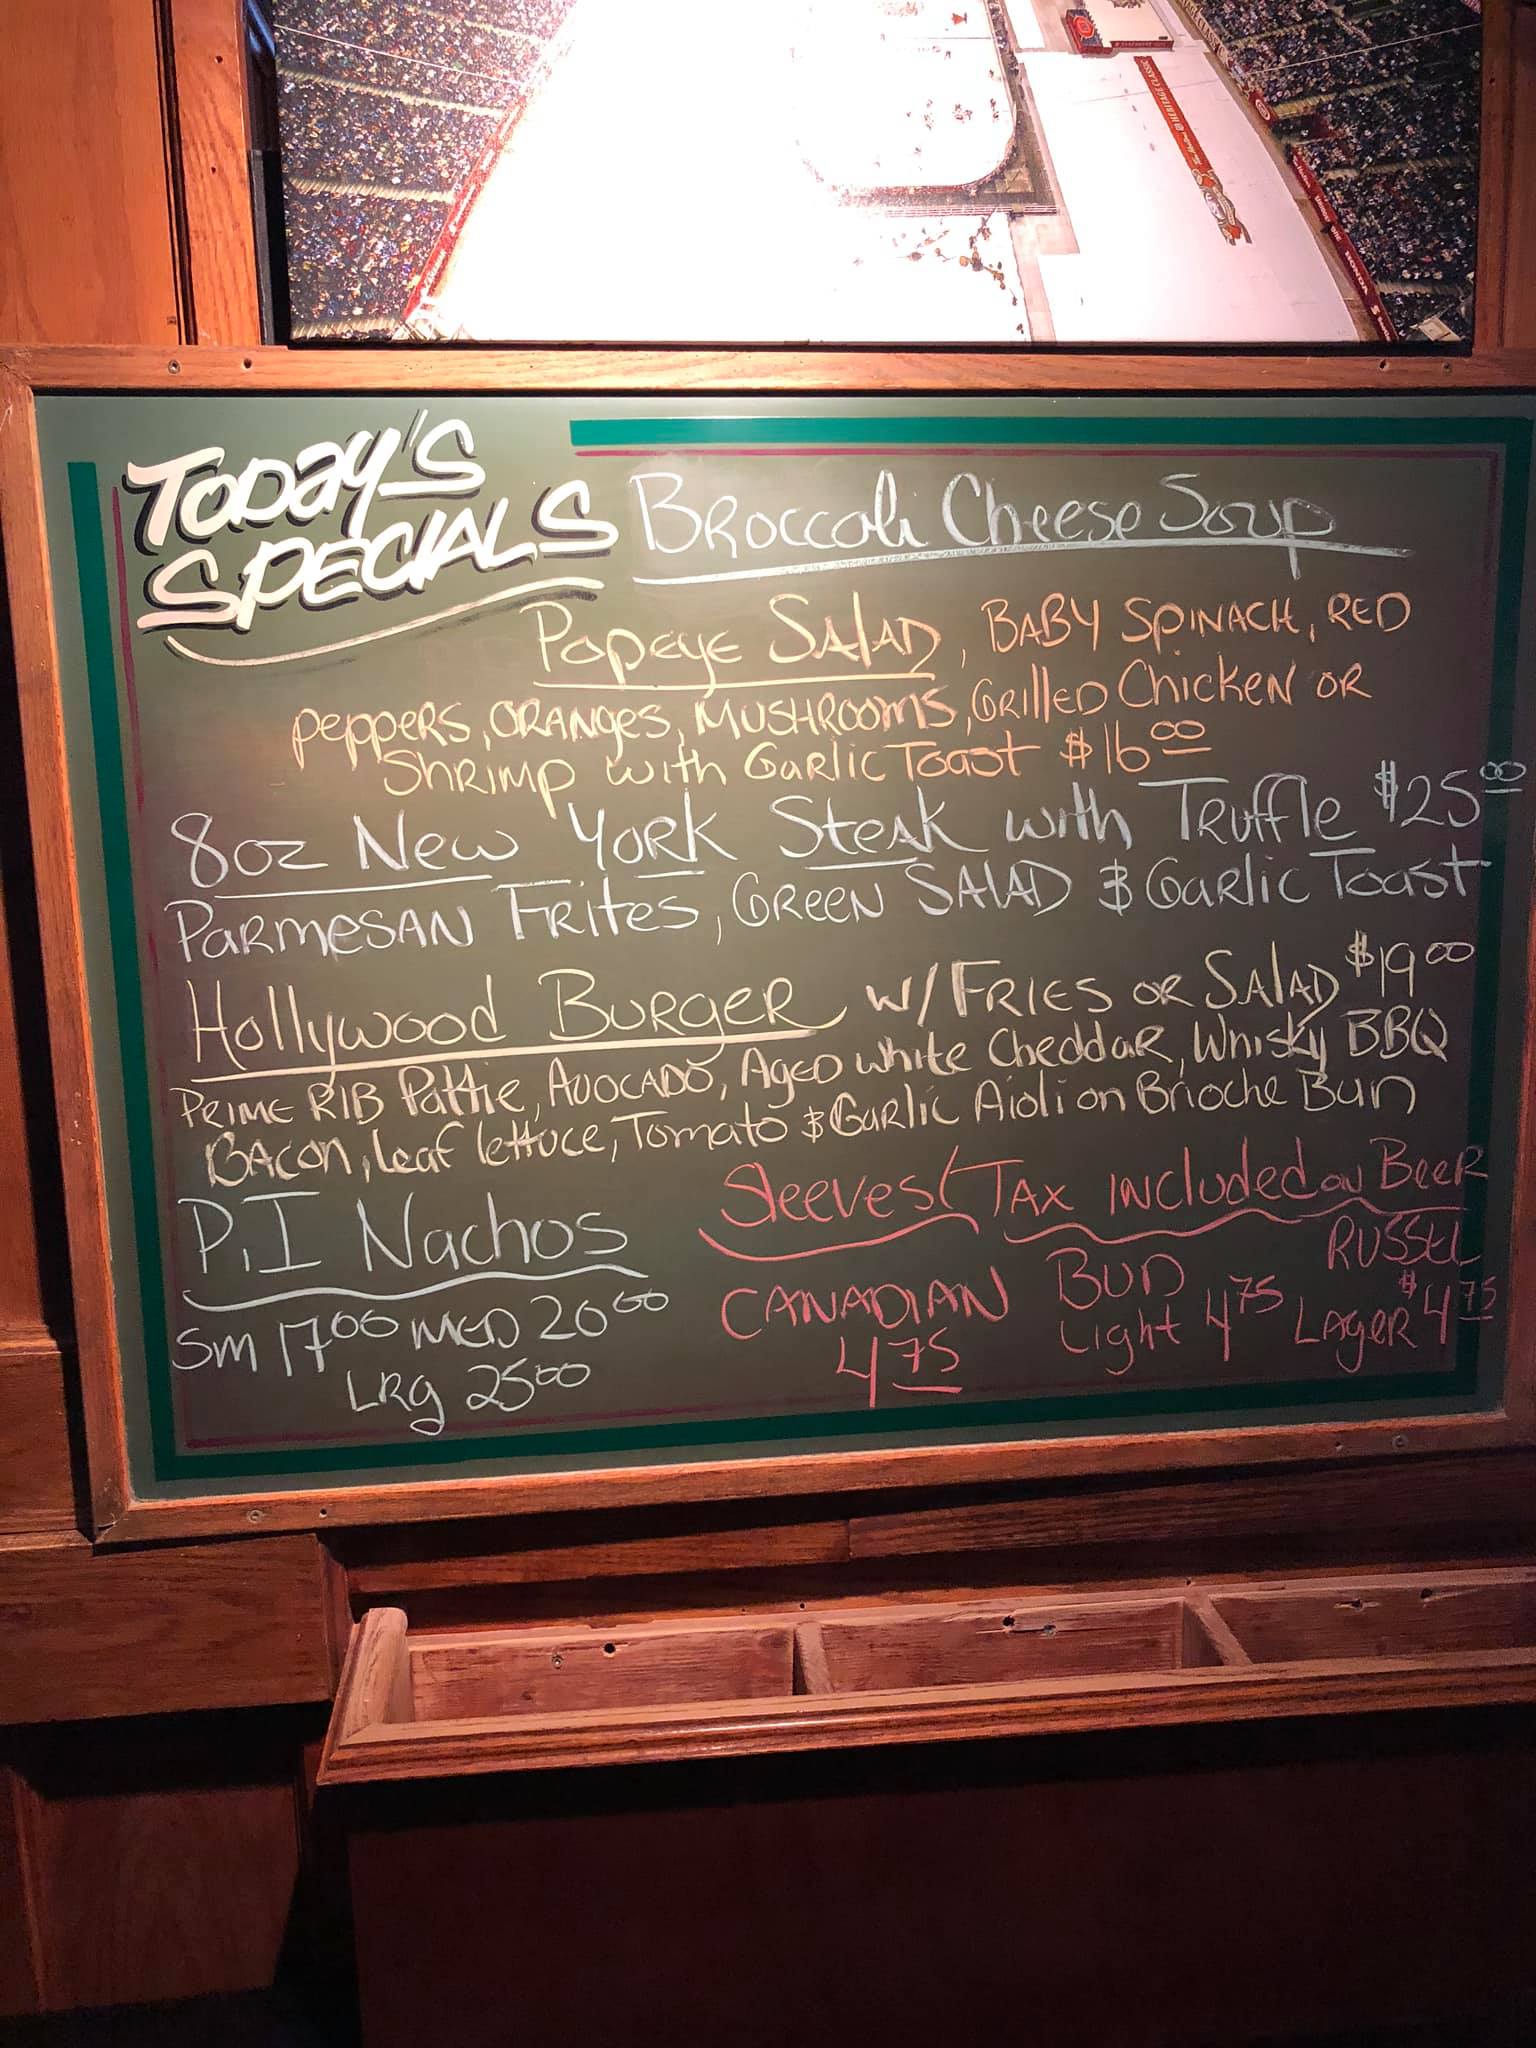 Tim Hortons HERITAGE CLASSIC
HONDA
TODAY'S
SPECIALS
Broccoli Cheese Soup
Popeye Salad, BABY SPINACH, RED
Peppers, ORANGES, MUSHROOMS, Grilled Chicken OR
Shrimp with Garlic Toast $16.00
8oz New York Steak with Truffle $25.00
Parmesan Frites, Green Salad & Garlic Toast
Hollywood Burger w/ Fries or Salad $19.00
Prime RIB Pattie, Avocado, Aged white Cheddar, Whisky BBQ
Bacon, Leaf lettuce, Tomato & Garlic Aioli on Brioche Bun
P.I Nachos
Sm 17.00 MED 20.00
LRG 25.00
Sleeves (TAX INCLUDED ON BEER
CANADIAN
4.75
BUD
Light 4.75
RUSSEL
LAGER $4.75